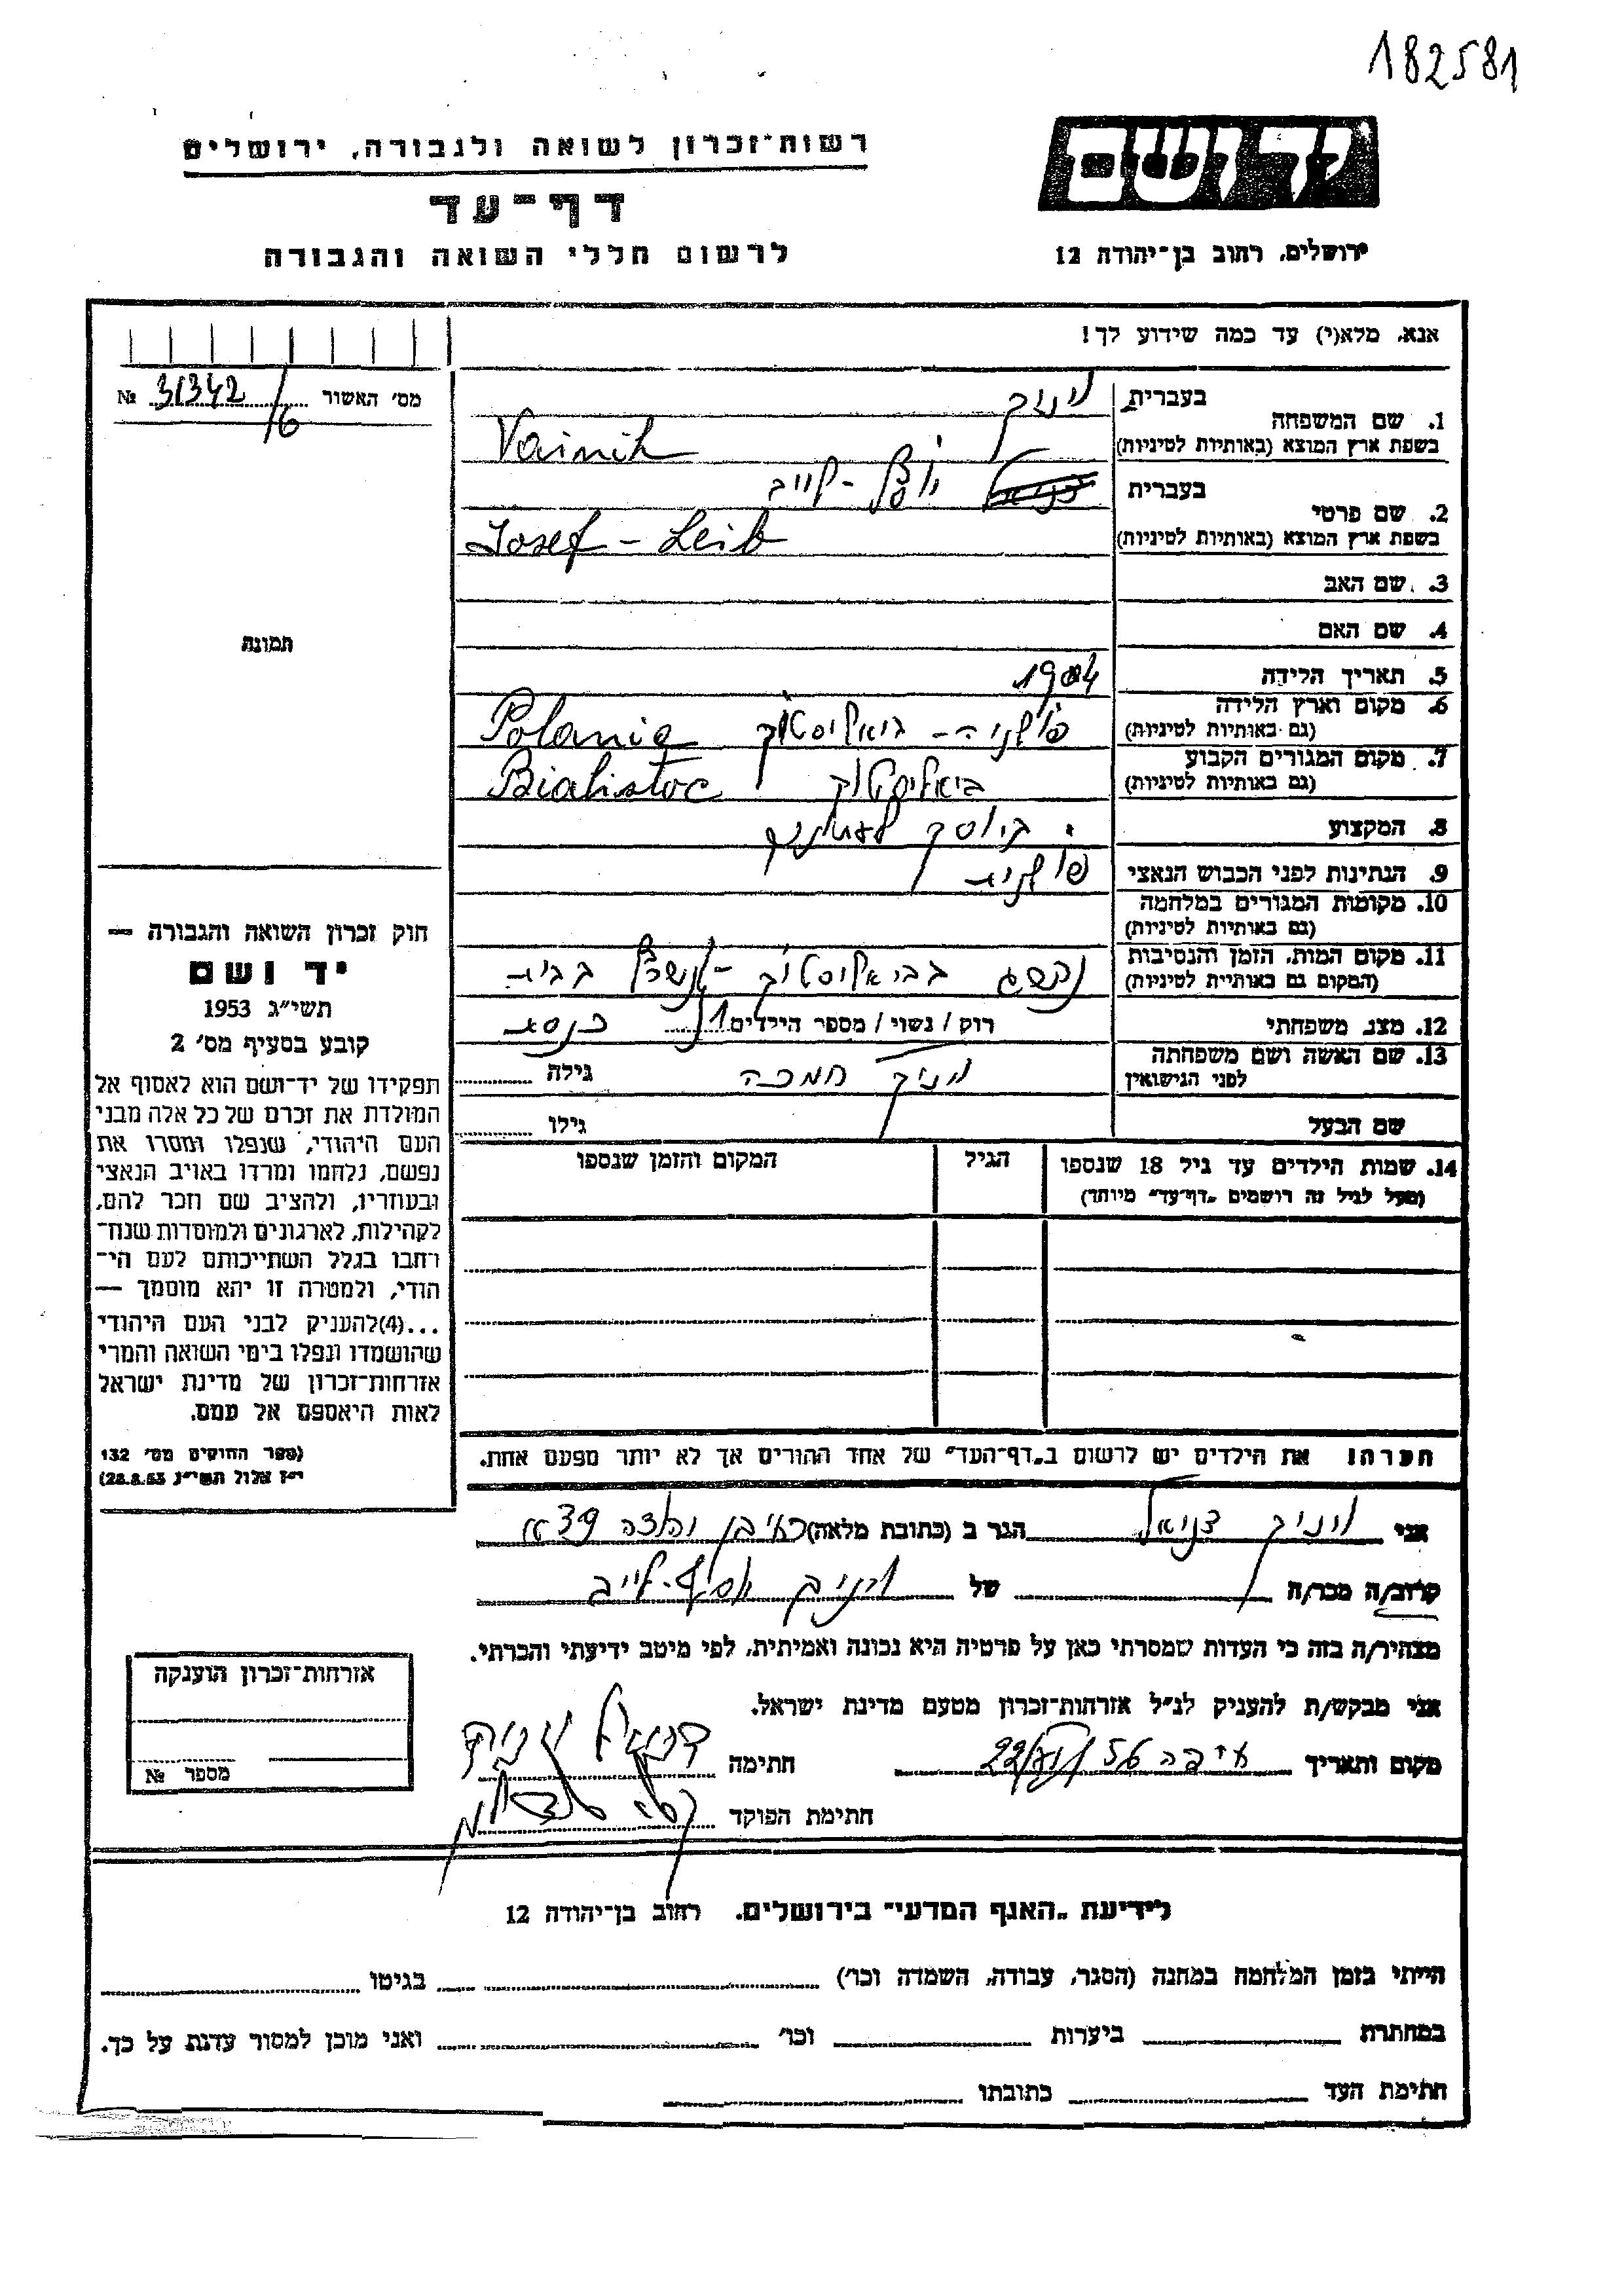 182581
יד ושם
ירושלים, רחוב בן־יהודה 12
רשות־זכרון לשואה ולגבורה, ירושלים
דף־עד
לרשום חללי השואה והגבורה
אנא, מלא(י) עד כמה שידוע לך!
מס׳ האשור 31342/6 №
תמונה
1. שם המשפחה
בעברית וינוק
בשפת ארץ המוצא (באותיות לטיניות) Vainik
2. שם פרטי
בעברית יוסף - לייב
בשפת ארץ המוצא (באותיות לטיניות) Josef - Leib
3. שם האב
4. שם האם
5. תאריך הלידה 1904
6. מקום וארץ הלידה
(גם באותיות לטיניות) פולניה - ביאליסטוק Polania
7. מקום המגורים הקבוע
(גם באותיות לטיניות) ביאליסטוק Bialistoc
8. המקצוע
9. הנתינות לפני הכבוש הנאצי פולנית
10. מקומות המגורים במלחמה
(גם באותיות לטיניות)
11. מקום המות, הזמן והנסיבות
(המקום גם באותיות לטיניות) בביאליסטוק - נשרף בבית
12. מצב משפחתי רוק / נשוי / מספר הילדים 1 כנסת
13. שם האשה ושם משפחתה
לפני הנישואין וניק גילה
שם הבעל גילו
14. שמות הילדים עד גיל 18 שנספו
(מעל לגיל זה רושמים „דף־עד״ מיוחד)
הגיל
המקום והזמן שנספו
חוק זכרון השואה והגבורה —
יד ושם
תשי״ג 1953
קובע בסעיף מס׳ 2
תפקידו של יד־ושם הוא לאסוף אל
המולדת את זכרם של כל אלה מבני
העם היהודי, שנפלו ומסרו את
נפשם, נלחמו ומרדו באויב הנאצי
ובעוזריו, ולהציב שם וזכר להם,
לקהילות, לארגונים ולמוסדות שנח־
רבו בגלל השתייכותם לעם הי־
הודי, ולמטרה זו יהא מוסמך —
...(4)להעניק לבני העם היהודי
שהושמדו ונפלו בימי השואה והמרי
אזרחות־זכרון של מדינת ישראל
לאות היאספם אל עמם.
(ספר החוקים מס׳ 132
י״ז אלול תשי״ג 28.8.53)
הערה! את הילדים יש לרשום ב„דף־העד״ של אחד ההורים אך לא יותר מפעם אחת.
אני וניק דניאל הגר ב (כתובת מלאה)
קרוב/ה מכר/ה של וניק יוסף - לייב
מצהיר/ה בזה כי העדות שמסרתי כאן על פרטיה היא נכונה ואמיתית, לפי מיטב ידיעתי והכרתי.
אני מבקש/ת להעניק לנ״ל אזרחות־זכרון מטעם מדינת ישראל.
מקום ותאריך חיפה חתימה דניאל וניק
חתימת הפוקד
אזרחות־זכרון הוענקה
מספר №
לידיעת „האגף המדעי״ בירושלים. רחוב בן־יהודה 12
הייתי בזמן המלחמה במחנה (הסגר, עבודה, השמדה וכו׳) בגיטו
במחתרת ביערות וכו׳ ואני מוכן למסור עדות על כך.
חתימת העד כתובתו